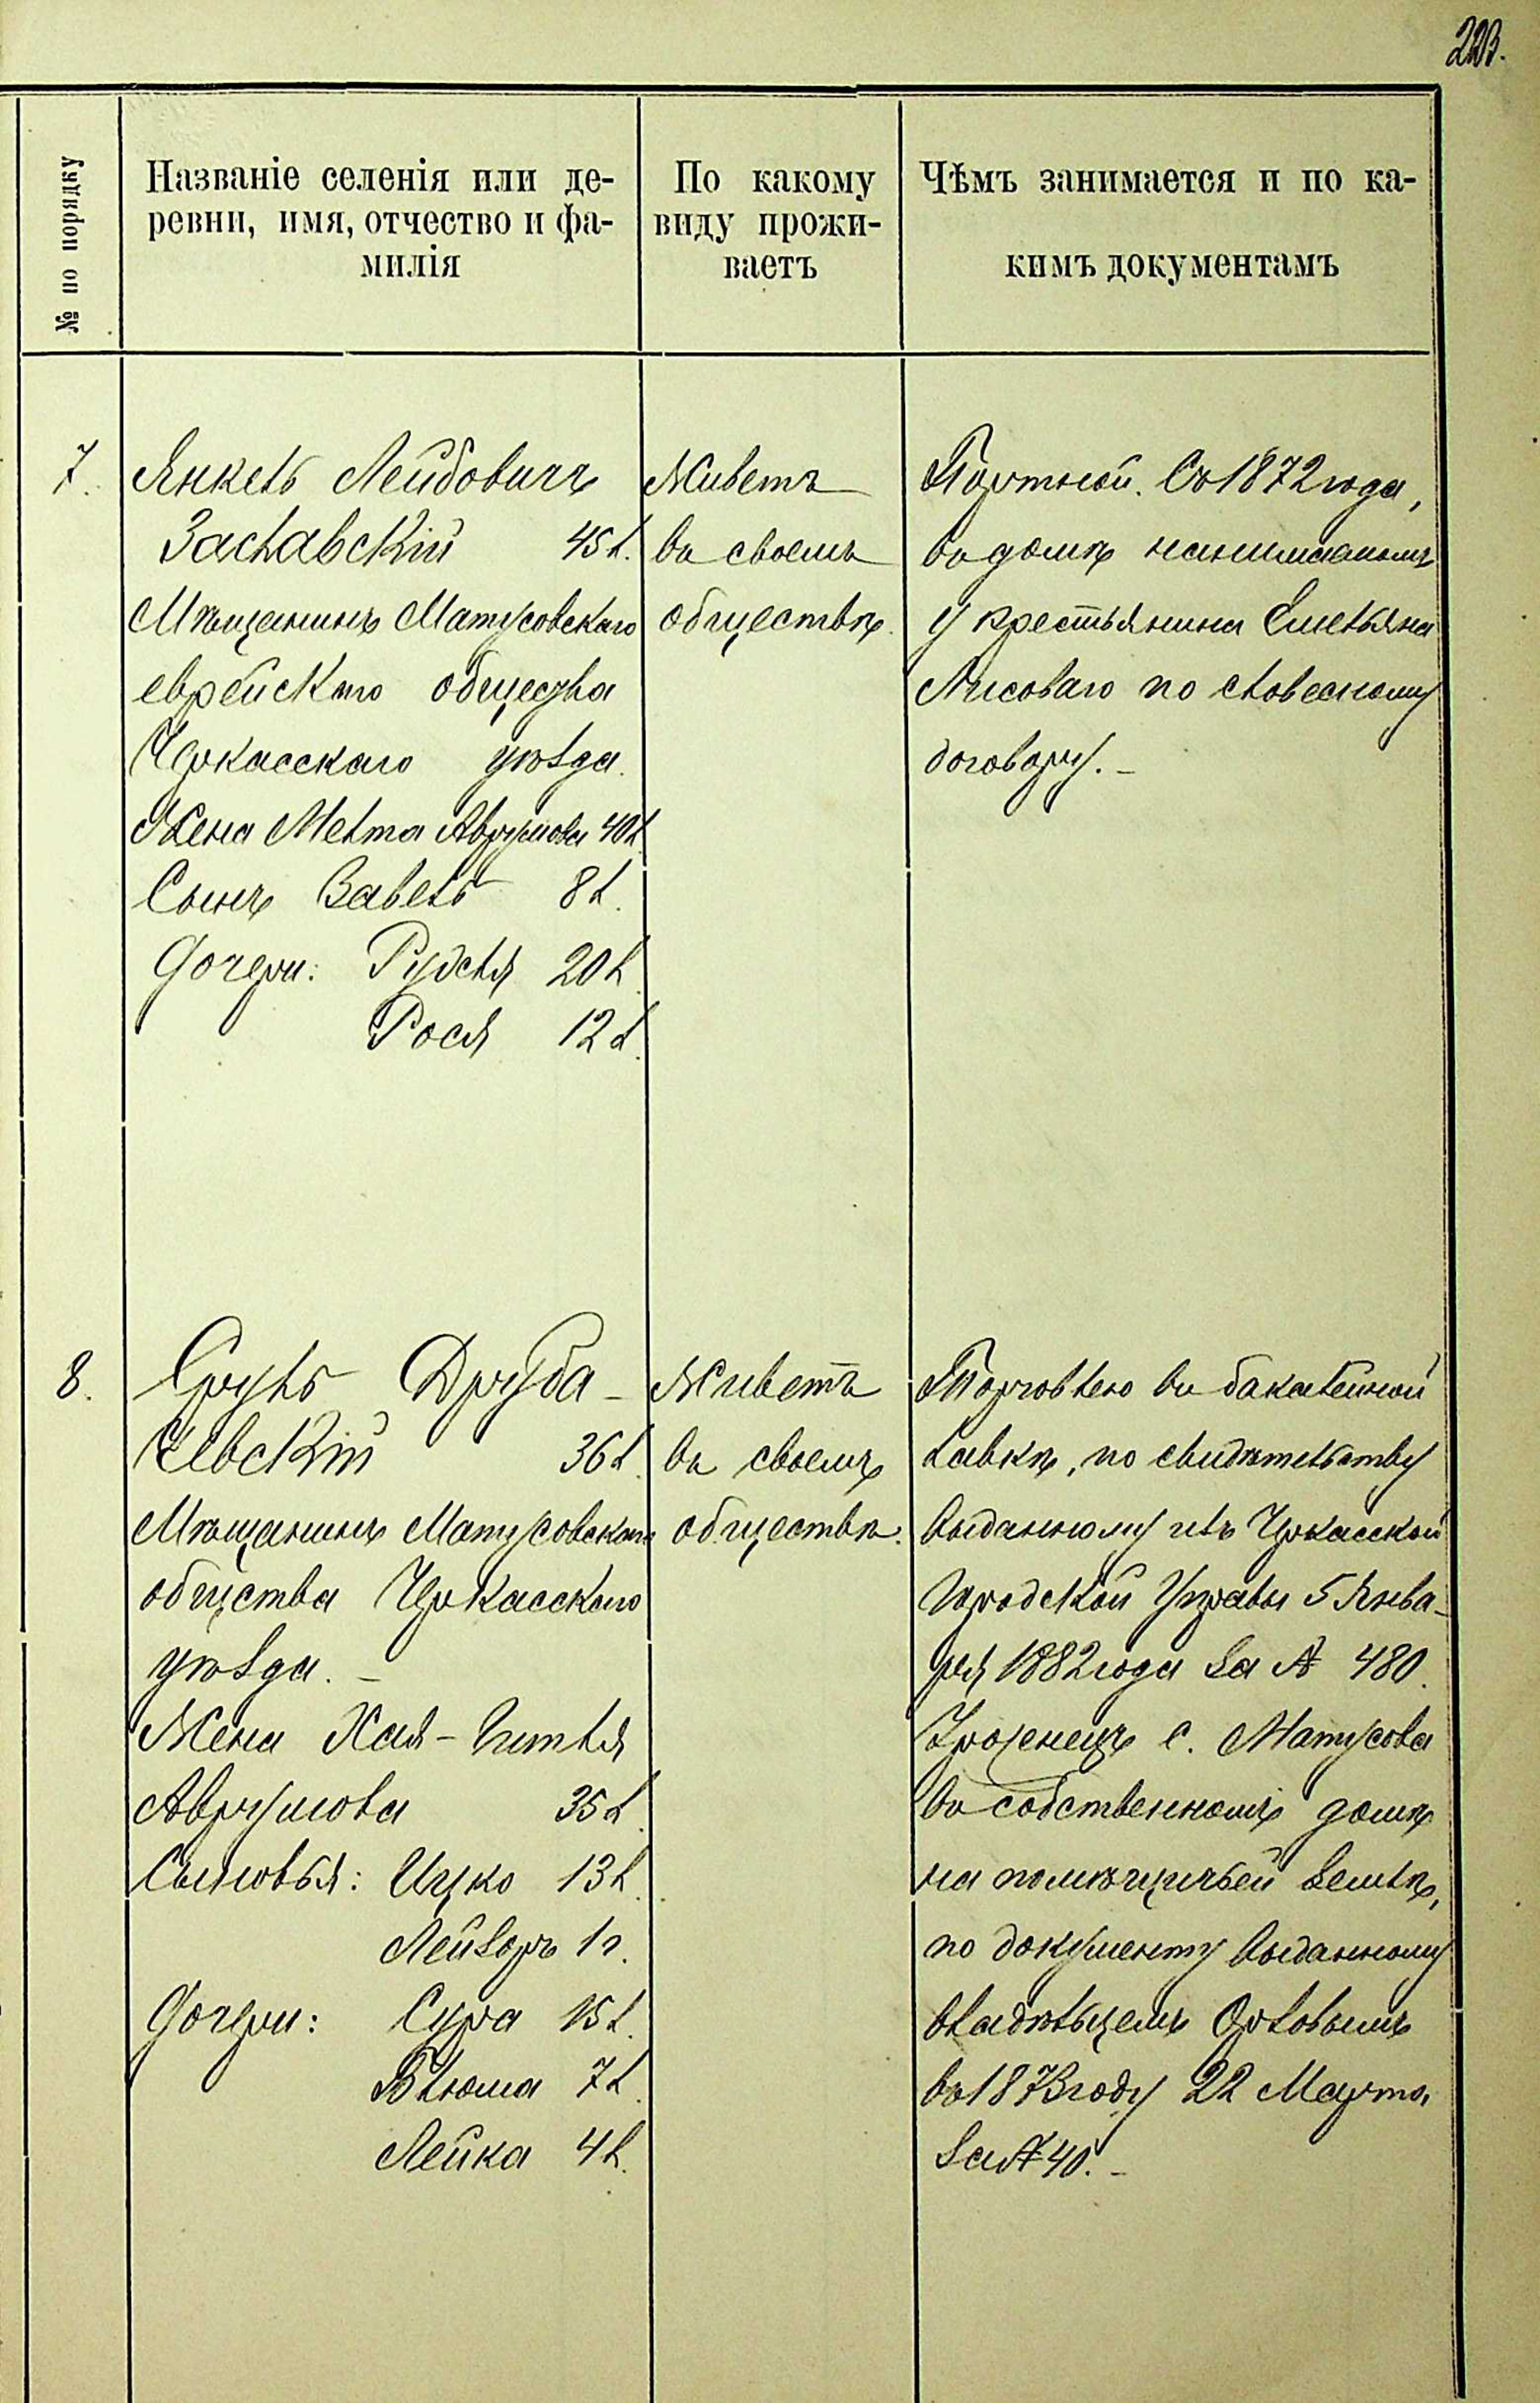 223.
№ по порядку
Названіе селенія или де-
ревни, имя, отчество и фа-
милія
По какому
виду прожи-
ваетъ
Чѣмъ занимается и по ка-
кимъ документамъ
7.
Янкель Лейбовичъ
Заславскій 45 л.
Мѣщанинъ Матусовскаго
еврейскаго общества
Черкасскаго уѣзда.
Жена Мелта Аврумова 40 л.
Сынъ Завель 8 л.
Дочери: Рухля 20 л.
Рося 12 л.
Живетъ
въ своемъ
обществѣ.
Портной. Съ 1872 года,
въ домѣ нанимаемомъ
у крестьянина Емельяна
Лисоваго по словесному
договору. –
8.
Сруль Друба-
чевскій 36 л.
Мѣщанинъ Матусовскаго
общства Черкасскаго
уѣзда. –
Жена Хая-Гитля
Аврумова 35 л.
Сыновья: Ицко 13 л.
Лейзоръ 1 г.
Дочери: Сура 15 л.
Блюма 7 л.
Лейка 4 л.
Живетъ
въ своемъ
обществѣ.
Торговлею въ бакалейной
лавкѣ, по свидѣтельству
выданному изъ Черкасской
Городской Управы 5 Янва-
ря 1882 года за № 480.
Уроженецъ с. Матусова
въ собственномъ домѣ
на помѣщичьей землѣ,
по документу выданному
владѣльцемъ Орловымъ
въ 1873 году 22 Марта,
за № 40. –